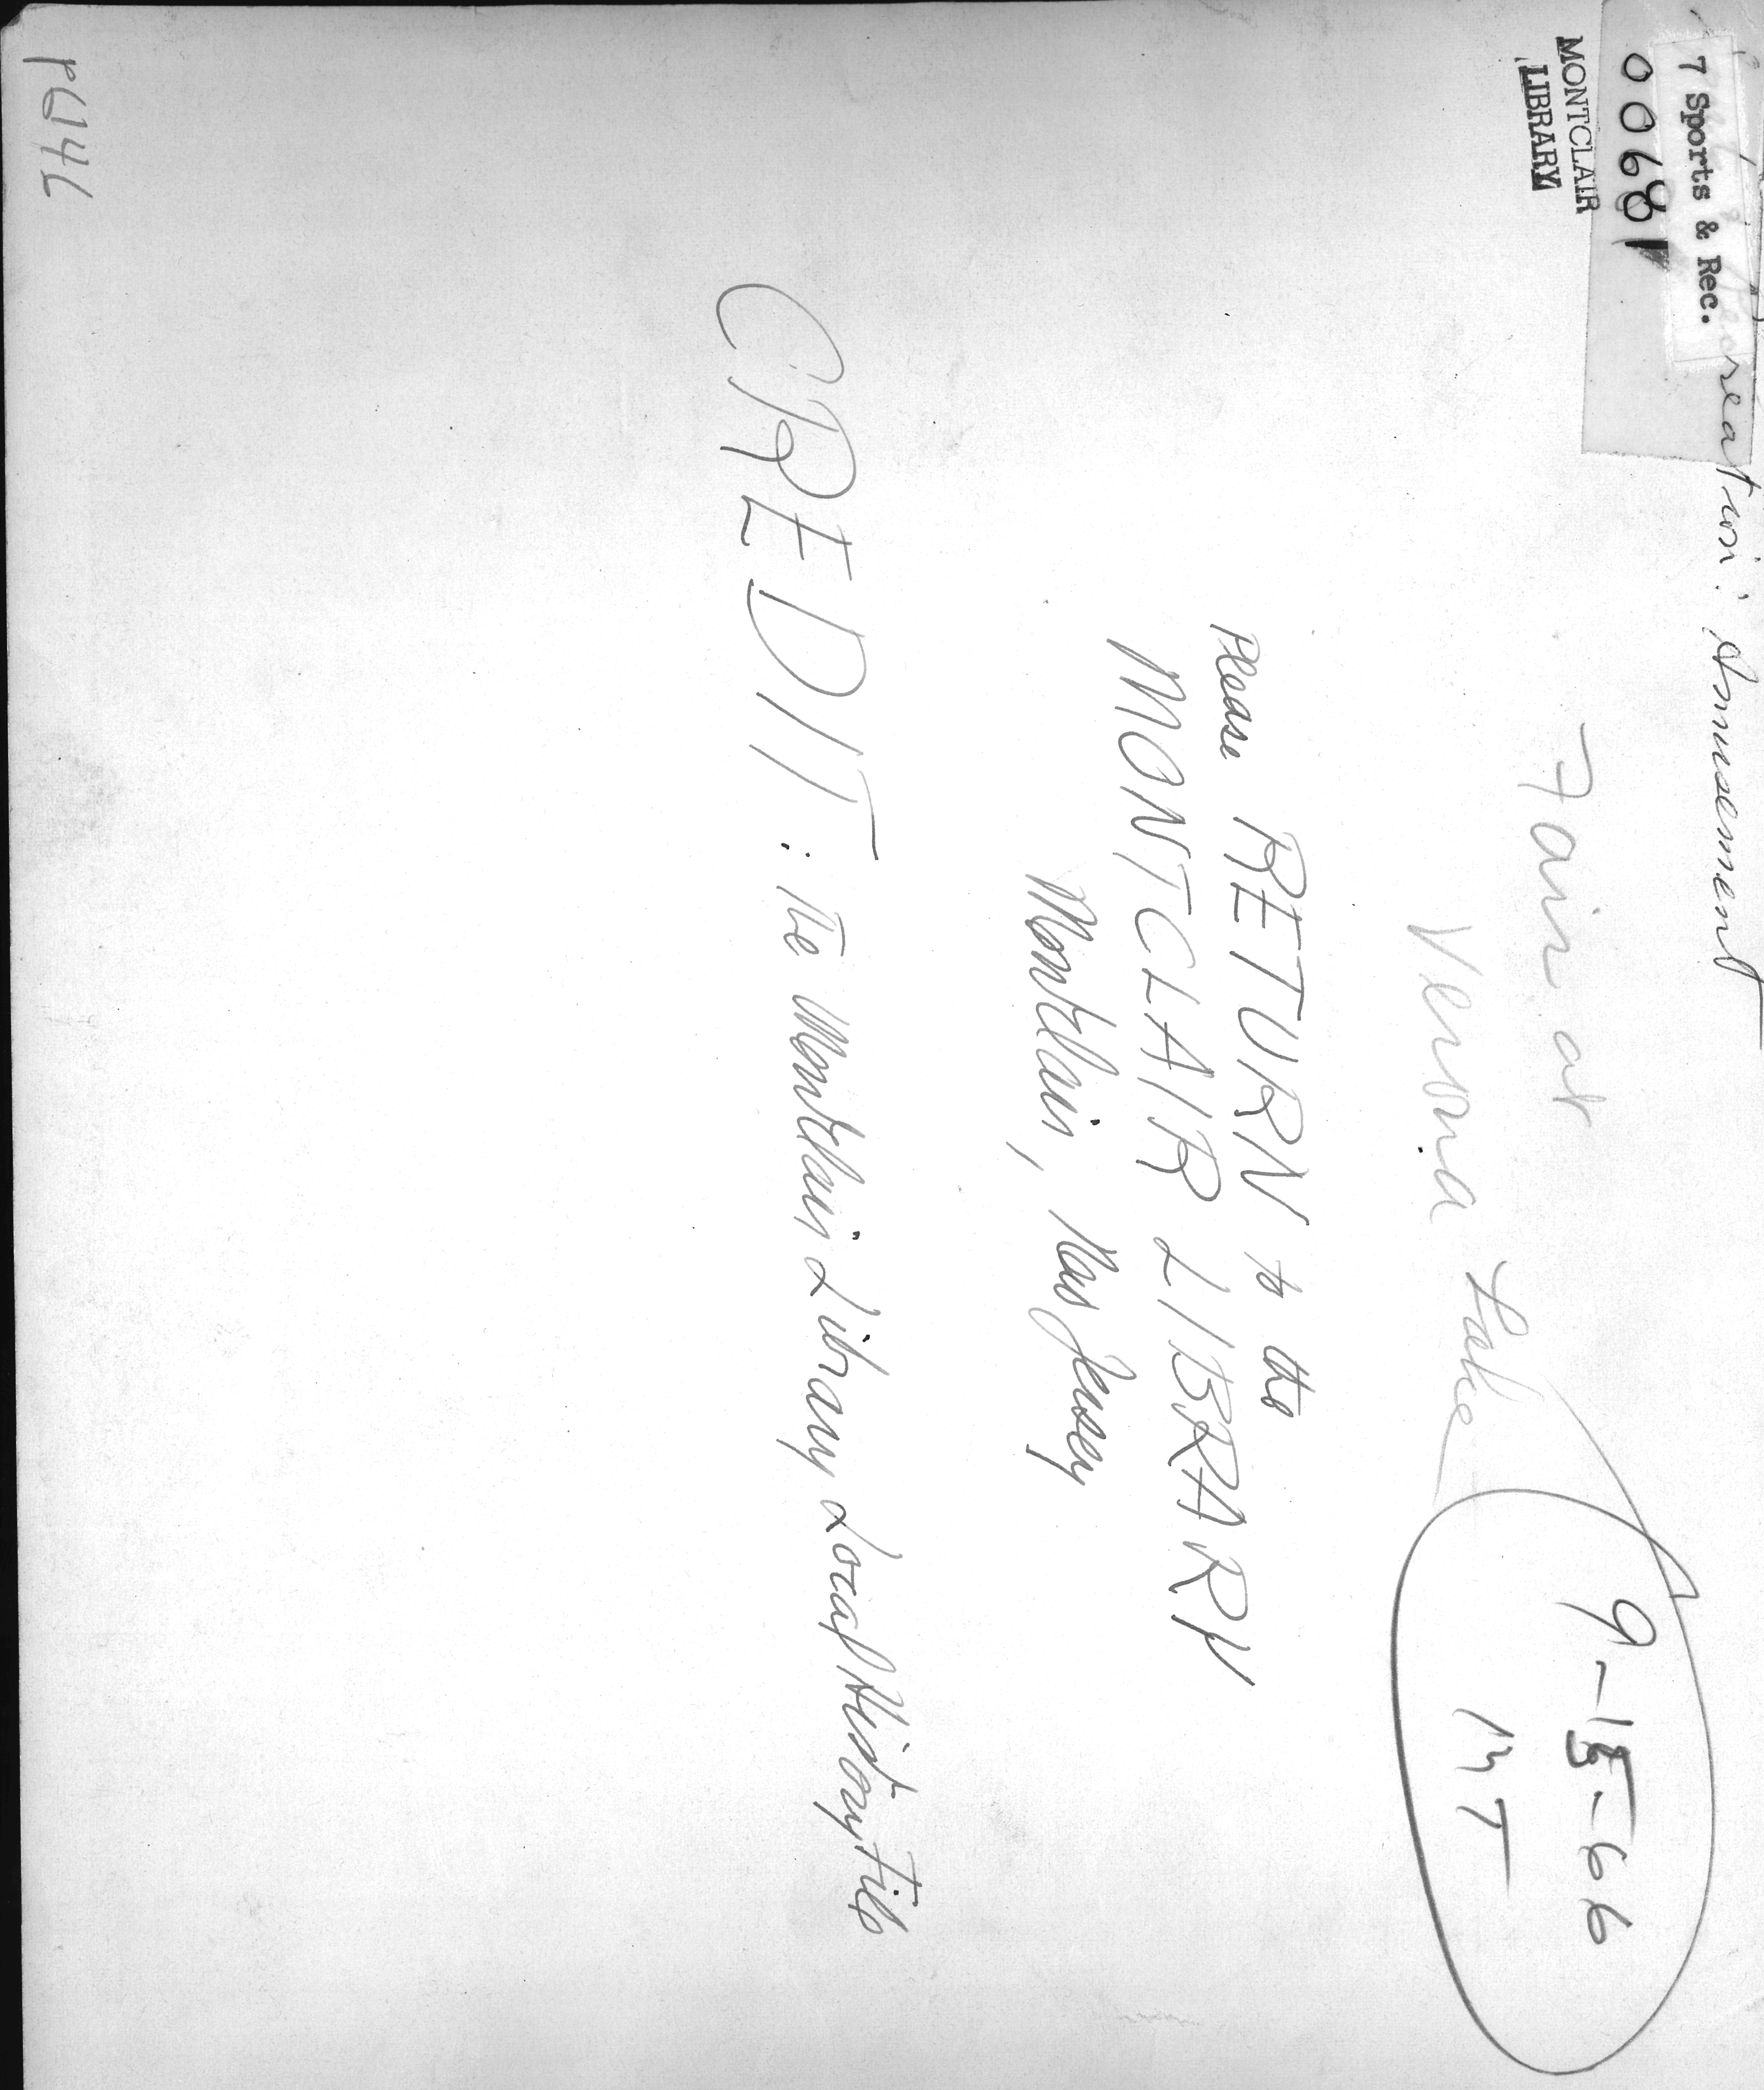 Recreation: Amusement
7 Sports & Rec.
00681
MONTCLAIR
LIBRARY
Fair at
Verona Lake
9-15-66
MT
Please RETURN to the
MONTCLAIR LIBRARY
Montclair, New Jersey
CREDIT: The Montclair Library Local History File